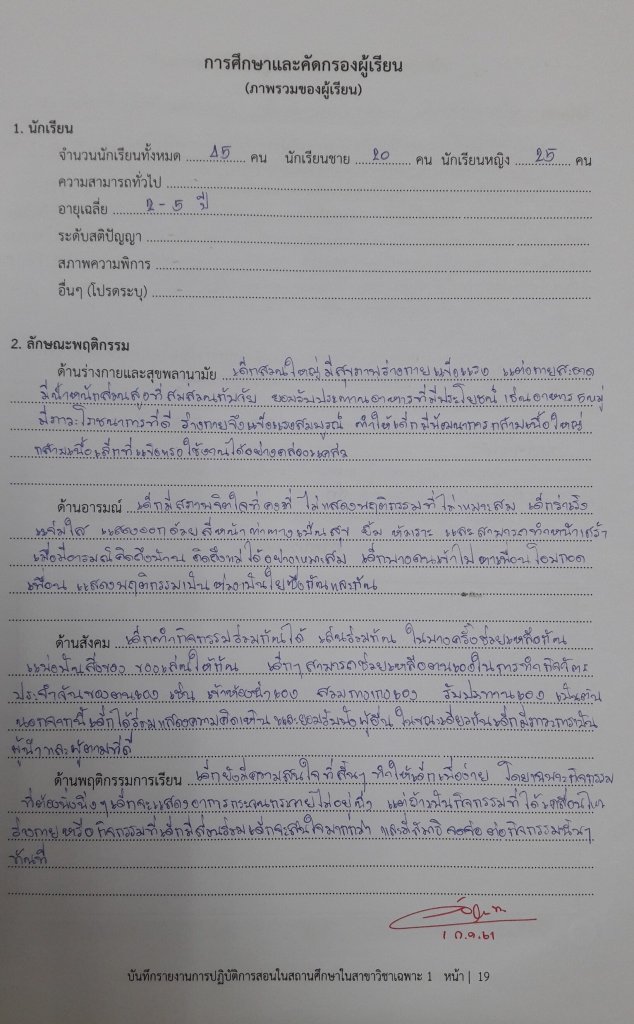 การศึกษาและคัดกรองผู้เรียน
(ภาพรวมของผู้เรียน)
1. นักเรียน
จำนวนนักเรียนทั้งหมด 45 คน นักเรียนชาย 20 คน นักเรียนหญิง 25 คน
ความสามารถทั่วไป
อายุเฉลี่ย 2 - 5 ปี
ระดับสติปัญญา
สภาพความพิการ
อื่นๆ (โปรดระบุ)
2. ลักษณะพฤติกรรม
ด้านร่างกายและสุขพลานามัย เด็กส่วนใหญ่มีสุขภาพร่างกายแข็งแรง แต่งกายสะอาด
มีน้ำหนักส่วนสูงที่สมส่วนกับวัย ยอมรับประทานอาหารที่มีประโยชน์ เช่นอาหาร 5 หมู่
มีภาวะโภชนาการที่ดี ร่างกายจึงแข็งแรงสมบูรณ์ ทำให้เด็กมีพัฒนาการกล้ามเนื้อใหญ่
กล้ามเนื้อเล็กที่แข็งแรงใช้งานได้อย่างคล่องแคล่ว
ด้านอารมณ์ เด็กมีสภาพจิตใจที่คงที่ ไม่แสดงพฤติกรรมที่ไม่เหมาะสม เด็กร่าเริง
แจ่มใส แสดงออกด้วยสีหน้าท่าทางเป็นสุข ยิ้ม หัวเราะ และสามารถทำหน้าเศร้า
เมื่อมีอารมณ์คิดถึงบ้าน คิดถึงแม่ได้อย่างเหมาะสม เด็กบางคนเข้าไปหาเพื่อนโอบกอด
เพื่อน แสดงพฤติกรรมเป็นห่วงเป็นใยซึ่งกันและกัน
ด้านสังคม เด็กทำกิจกรรมร่วมกันได้ เล่นร่วมกัน ในบางครั้งช่วยเหลือกัน
แบ่งปันสิ่งของ ของเล่นให้กัน เด็กๆสามารถช่วยเหลือตนเองในการทำกิจวัตร
ประจำวันของตนเอง เช่น เข้าห้องน้ำเอง สวมกางเกงเอง รับประทานเอง เป็นต้น
นอกจากนี้เด็กได้ร่วมแสดงความคิดเห็น และยอมรับฟังผู้อื่น ในขณะเดียวกันเด็กมีภาวะการเป็น
ผู้นำและผู้ตามที่ดี
ด้านพฤติกรรมการเรียน เด็กยังมีความสนใจที่สั้นๆ ทำให้เด็กเบื่อง่าย โดยเฉพาะกิจกรรม
ที่ต้องนั่งนิ่งๆ เด็กจะแสดงอาการกระวนกระวายไม่อยู่นิ่ง แต่ถ้าเป็นกิจกรรมที่ได้เคลื่อนไหว
ร่างกาย หรือ กิจกรรมที่เด็กมีส่วนร่วมเด็กจะสนใจมากกว่า และมีสมาธิ จดจ่อ ต่อกิจกรรมนั้นๆ
ทันที
1 ก.ค. 61
บันทึกรายงานการปฏิบัติการสอนในสถานศึกษาในสาขาวิชาเฉพาะ 1 หน้า | 19